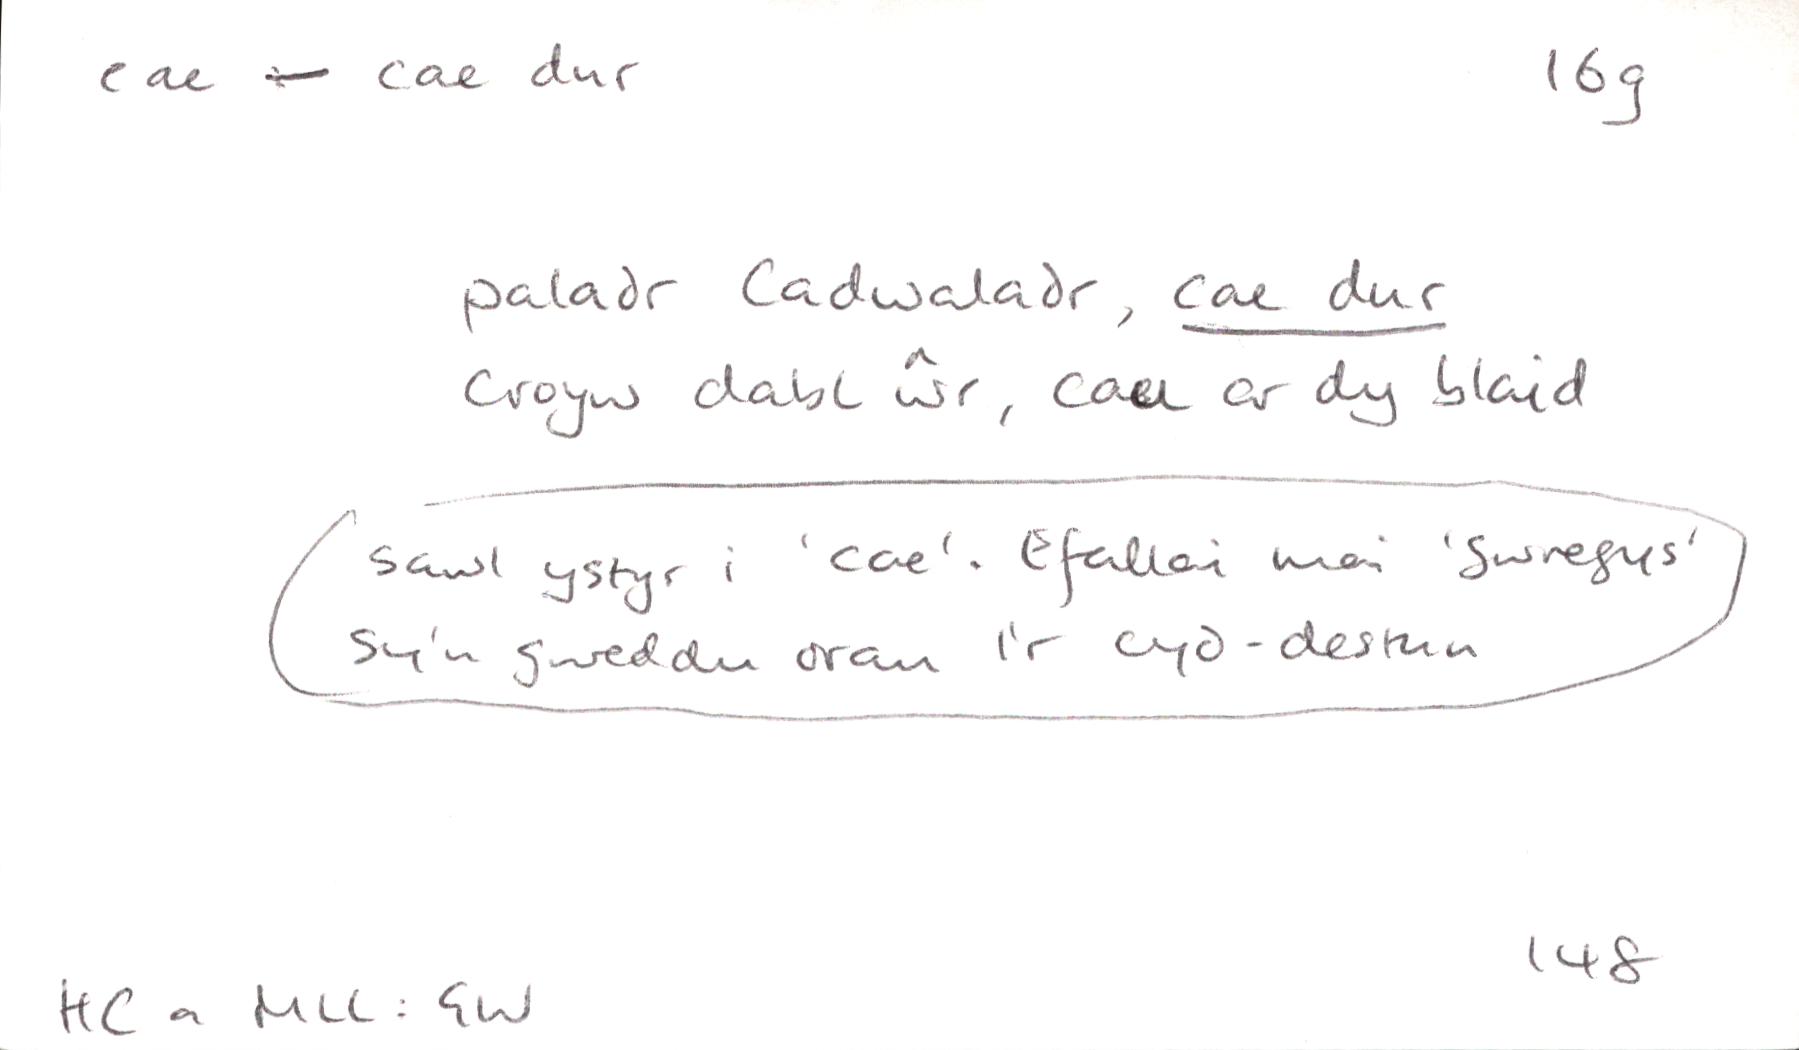 cae — cae dur 16g
paladr Cadwaladr, cae dur
Croyw dabl ŵr, cael ar dy blaid
sawl ystyr i 'cae'. Efallai mai 'gwregys'
sy'n gweddu orau i'r cyd-destun
148
HC a MLL: GW